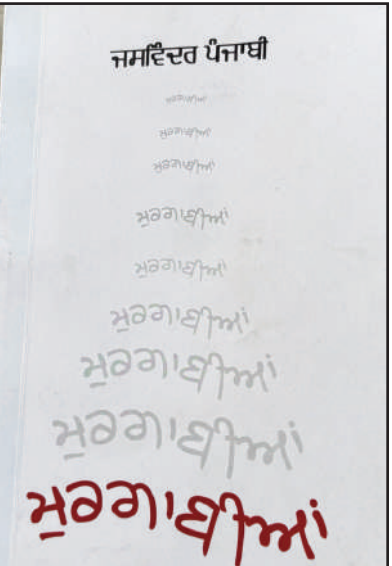 ਜਸਵਿੰਦਰ ਪੰਜਾਬੀ
ਮੁਰਗਾਬੀਆਂ
ਮੁਰਗਾਬੀਆਂ
ਮੁਰਗਾਬੀਆਂ
ਮੁਰਗਾਬੀਆਂ
ਮੁਰਗਾਬੀਆਂ
ਮੁਰਗਾਬੀਆਂ
ਮੁਰਗਾਬੀਆਂ
ਮੁਰਗਾਬੀਆਂ
ਮੁਰਗਾਬੀਆਂ